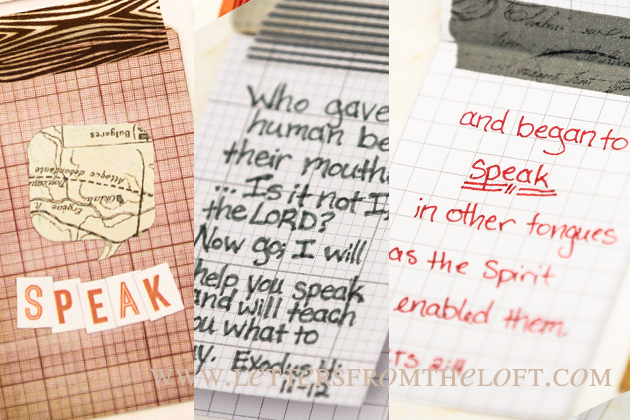 Bulgeres
Allogee dependante
SPEAK
Who gave
human be
their mouth
... Is it not I,
the LORD?
Now go; I will
help you speak
and will teach
ou what to
y. Exodus 4:
11-12
and began to
speak
in other tongues
as the Spirit
enabled them
TS 2:4
WWW.LETTERSFROMTHELOFT.COM